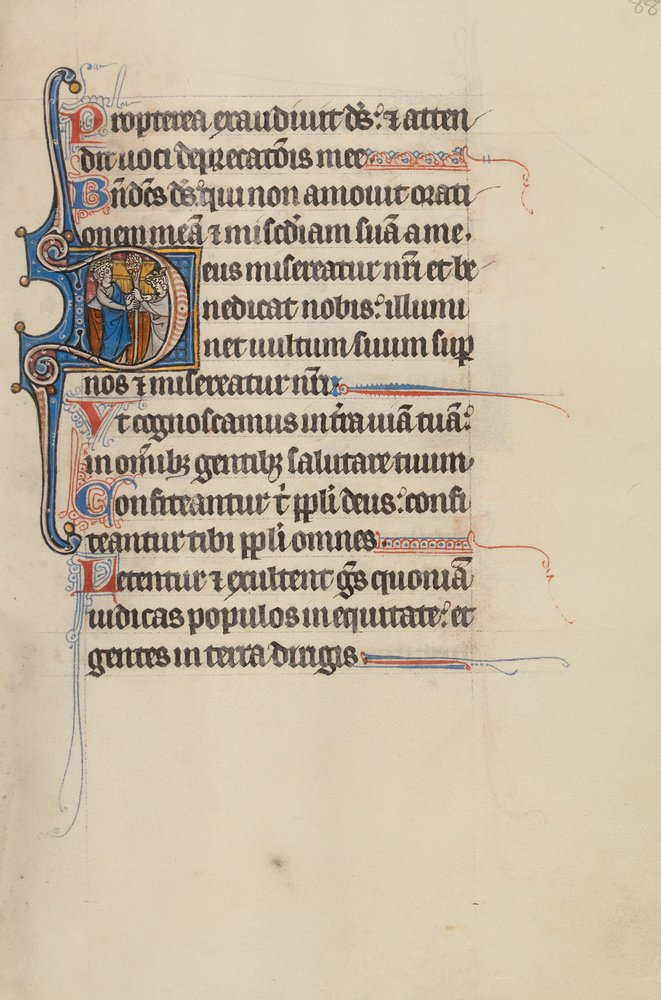 88
Propterea exaudiuit d̄s: ⁊ atten
dit uoci deprecat̄ōis mee
Bn̄dc̄s d̄s: qui non amouit orati
onem meā ⁊ misc̄diam suā a me.
Deus misereatur nr̄i et be
nedicat nobis: illumi
net uultum suum sup
nos ⁊ misereatur nr̄i
Vt cognoscamus in t̄ra uiā tuā:
in om̄ibꝫ gentibꝫ salutare tuum
Confiteantur t̄ ppl̄i deus: confi
teantur tibi ppl̄i omnes
Letentur ⁊ exultent gn̄s quoniā
iudicas populos in equitate: et
gentes in terra dirigis